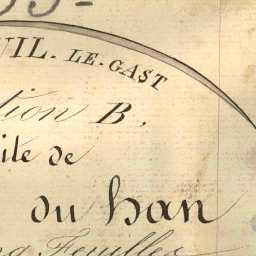 UIL-LE-GAST
tion B,
ite de
du han
Feuilles